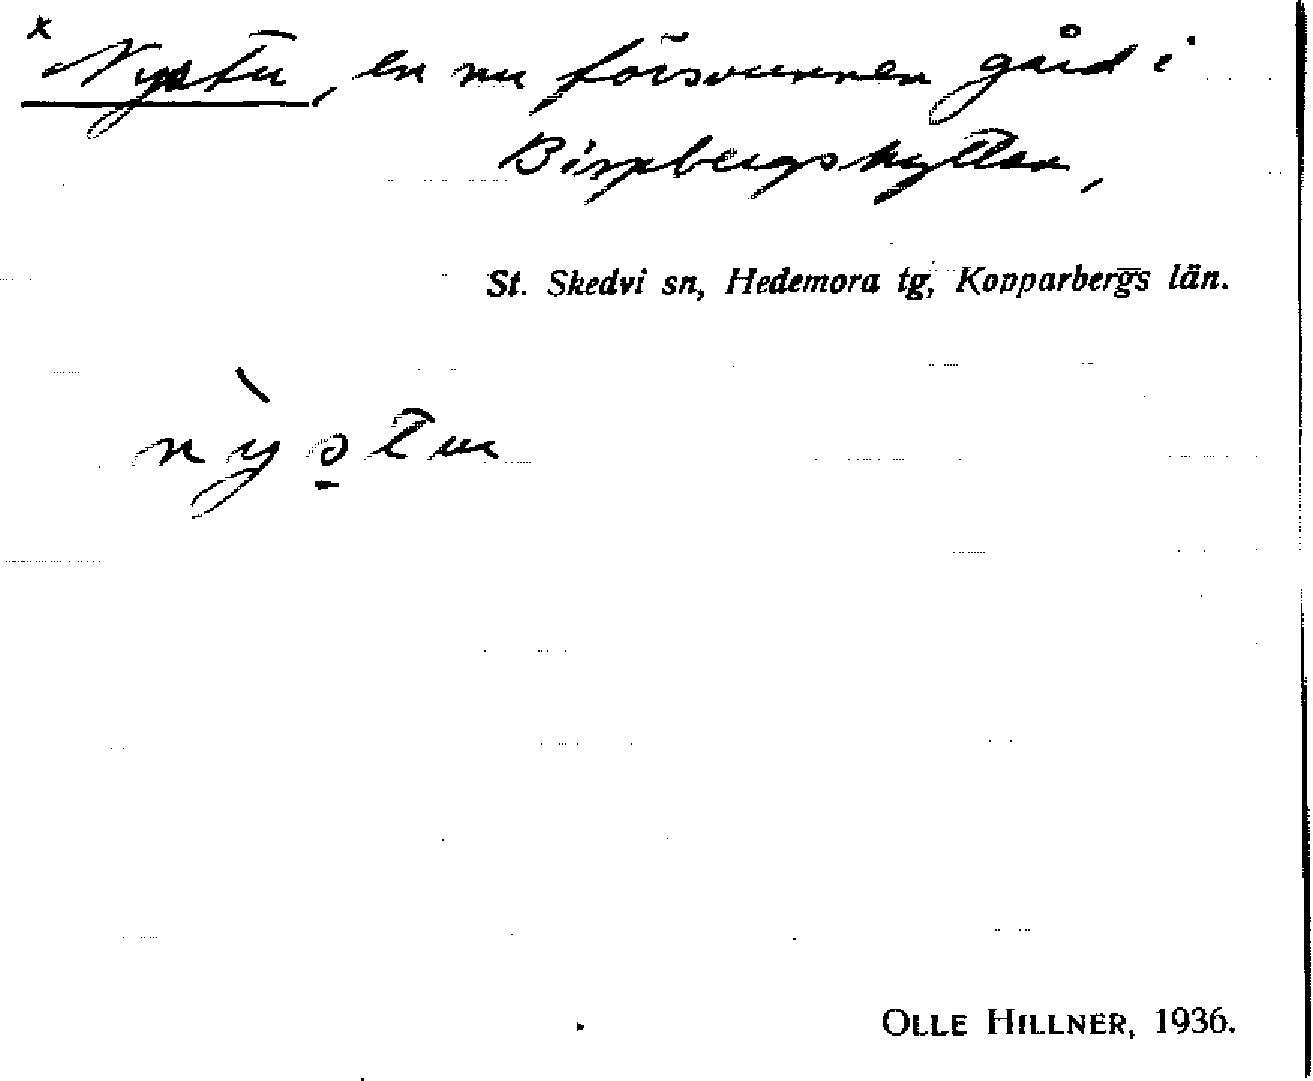 x Nystu, en nu försvunnen gård i
Bispbergshyttan,
St. Skedvi sn, Hedemora tg, Kopparbergs län.
nỳstu
OLLE HILLNER, 1936.